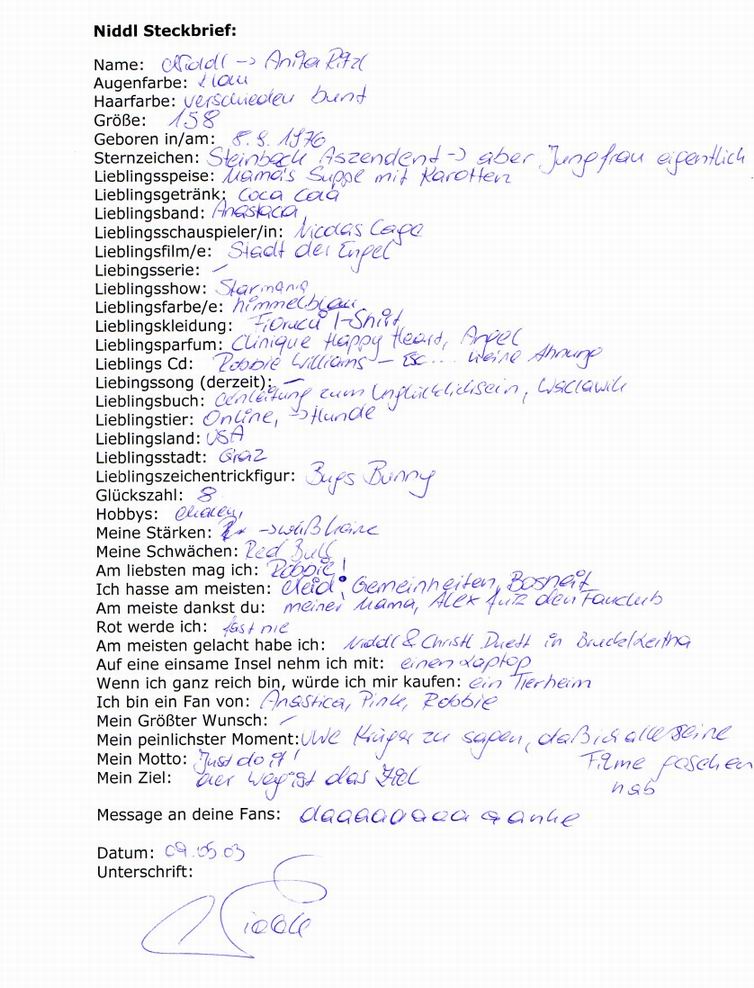 Niddl Steckbrief:
Name: Niddl -> Anita Ritzl
Augenfarbe: blau
Haarfarbe: verschieden bunt
Größe: 158
Geboren in/am: 8.9.1976
Sternzeichen: Steinbock Aszendent -> aber Jungfrau eigentlich
Lieblingsspeise: Mama's Suppe mit Karotten
Lieblingsgetränk: Coca Cola
Lieblingsband: Anastacia
Lieblingsschauspieler/in: Nicolas Cage
Lieblingsfilm/e: Stadt der Engel
Liebingsserie: –
Lieblingsshow: Starmania
Lieblingsfarbe/e: himmelblau
Lieblingskleidung: Fiorucci T-Shirt
Lieblingsparfum: Clinique Happy Heart, Angel
Lieblings Cd: Robbie Williams – Esc... keine Ahnung
Liebingssong (derzeit): –
Lieblingsbuch: Anleitung zum Unglücklichsein, Watzlawik
Lieblingstier: Online, -> Hunde
Lieblingsland: USA
Lieblingsstadt: Graz
Lieblingszeichentrickfigur: Bugs Bunny
Glückszahl: 8
Hobbys:
Meine Stärken: -> weiß keine
Meine Schwächen: Red Bull
Am liebsten mag ich: Robbie!
Ich hasse am meisten: Neid, Gemeinheiten, Bosheit
Am meiste dankst du: meiner Mama, Alex den Fanclub
Rot werde ich: fast nie
Am meisten gelacht habe ich: Niddl & Christl Duett in Bruck/Leitha
Auf eine einsame Insel nehm ich mit: einen Laptop
Wenn ich ganz reich bin, würde ich mir kaufen: ein Tierheim
Ich bin ein Fan von: Anastica, Pink, Robbie
Mein Größter Wunsch: –
Mein peinlichster Moment: Uwe Kröger zu sagen, daß ich alle seine
Mein Motto: Just do it! Filme gesehen
Mein Ziel: der Weg ist das Ziel hab
Message an deine Fans: daaaaaaaa a anke
Datum: 09.05.03
Unterschrift:
Niddl